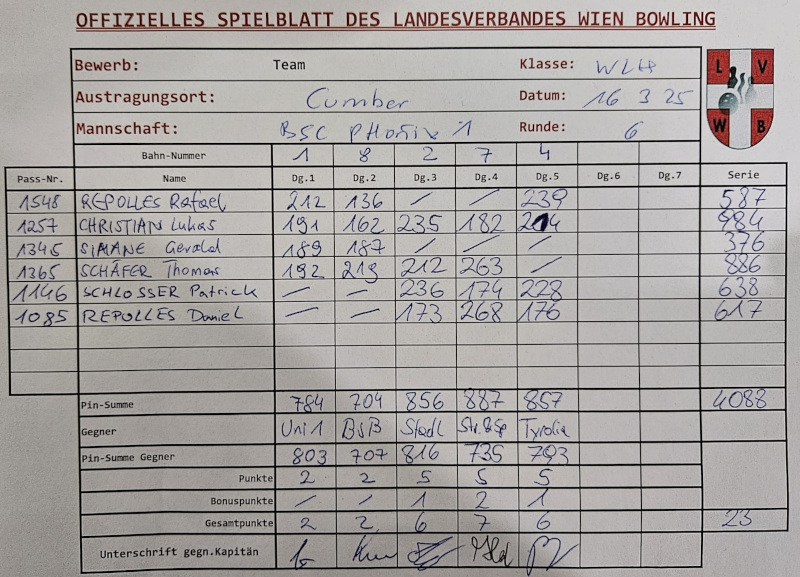 OFFIZIELLES SPIELBLATT DES LANDESVERBANDES WIEN BOWLING
Bewerb: Team Klasse: WLH
Austragungsort: Cumber Datum: 16 3 25
Mannschaft: BSC PHOENIX 1 Runde: 6
L V W B
Bahn-Nummer 1 8 2 7 4
Pass-Nr. Name Dg.1 Dg.2 Dg.3 Dg.4 Dg.5 Dg.6 Dg.7 Serie
1548 REPOLLES Rafael 212 136 / / 239 587
1257 CHRISTIAN Lukas 191 162 235 182 214 984
1345 SIMANE Gerald 189 187 / / / 376
1365 SCHÄFER Thomas 192 219 212 263 / 886
1146 SCHLOSSER Patrick / / 236 174 228 638
1085 REPOLLES Daniel / / 173 268 176 617
Pin-Summe 784 704 856 887 857 4088
Gegner Uni 1 BSB Stadl Str.&Sp Tyrolia
Pin-Summe Gegner 803 707 816 735 793
Punkte 2 2 5 5 5
Bonuspunkte / / 1 2 1
Gesamtpunkte 2 2 6 7 6 23
Unterschrift gegn.Kapitän